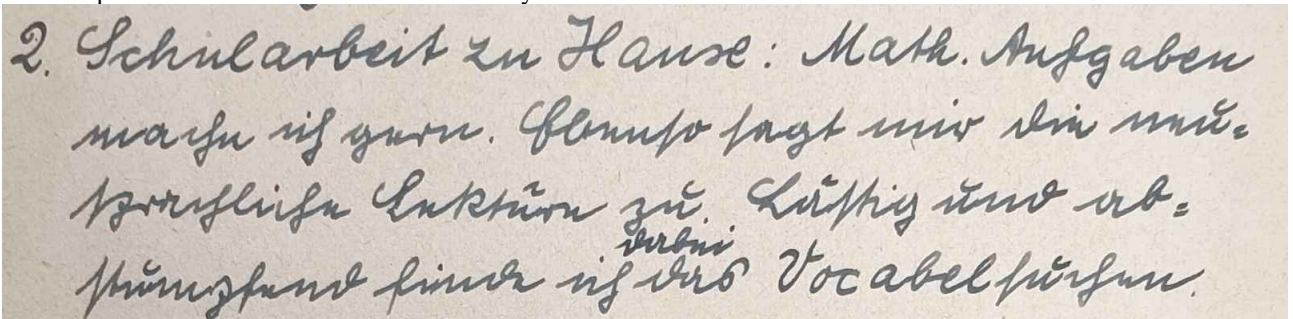 2. Schularbeit zu Hause: Math. Aufgaben
mache ich gern. Ebenso sagt mir die neu-
sprachliche Lektüre zu. Lästig und ab-
dabei
stumpfend finde ich das Vocabelsuchen.